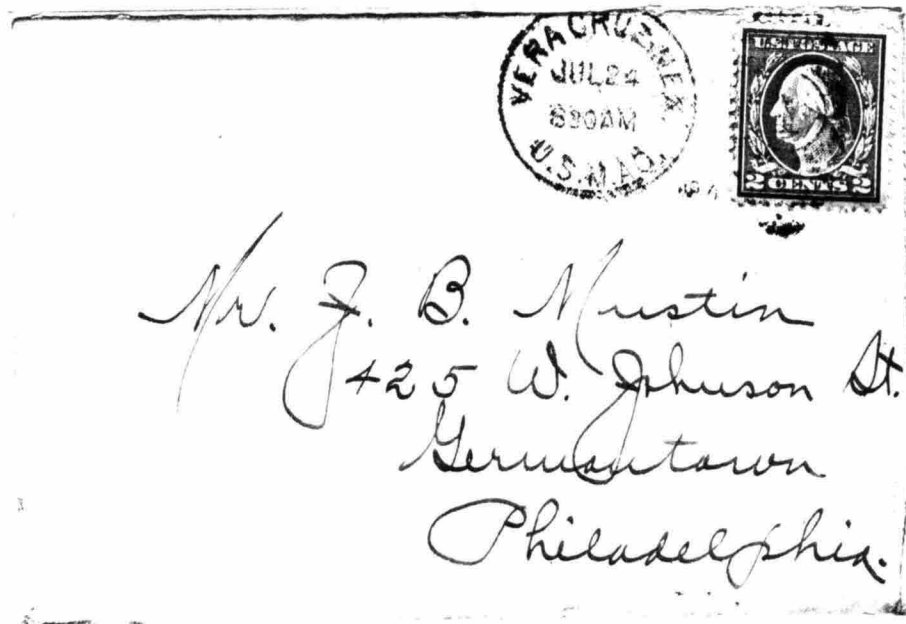 VERA CRUZ, MEX.
JUL 24
830AM
U.S.M.AG.
U.S. POSTAGE
2 CENTS 2
Mr. J. B. Mustin
425 W. Johnson St.
Germantown
Philadelphia.